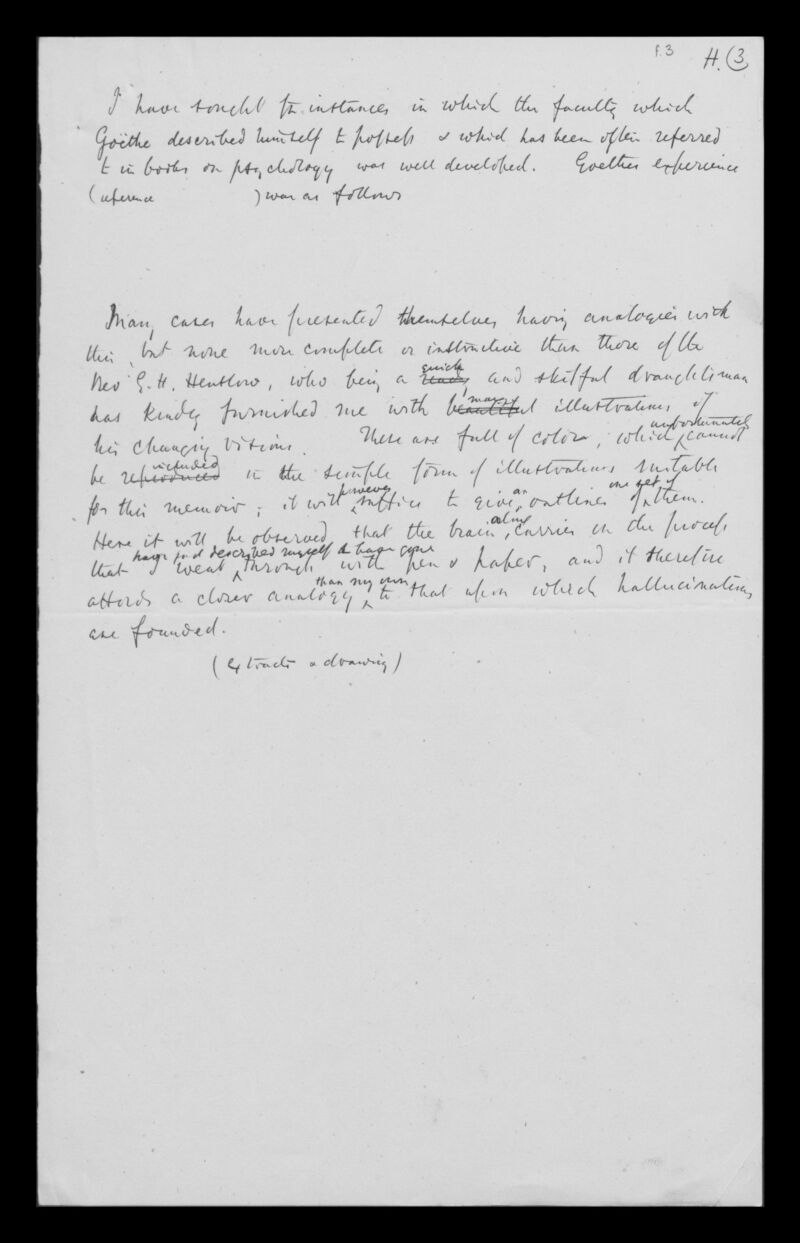 f.3
H. (3)
I have sought for instances in which the faculty which
Goëthe described himself to possess & which has been often referred
to in books on psychology was well developed. Goethes experience
(reference ) was as follows
Many cases have presented themselves having analogies with
this, but none more complete or instructive than those of the
quick
Rev G. H. Henslow, who being a ready and skilful draughtsman
many
has kindly furnished me with beautiful illustrations of
unfortunately
his changing visions. These are full of colour, which cannot
included
be reproduced in the simple form of illustrations suitable
however an one set of
for this memoir; it will suffice to give outlines of them.
alone
Here it will be observed that the brain carries on the process
have just described myself to have gone
that I went through with pen & paper, and it therefore
than my own
affords a closer analogy to that upon which hallucinations
are founded.
(extracts & drawing)